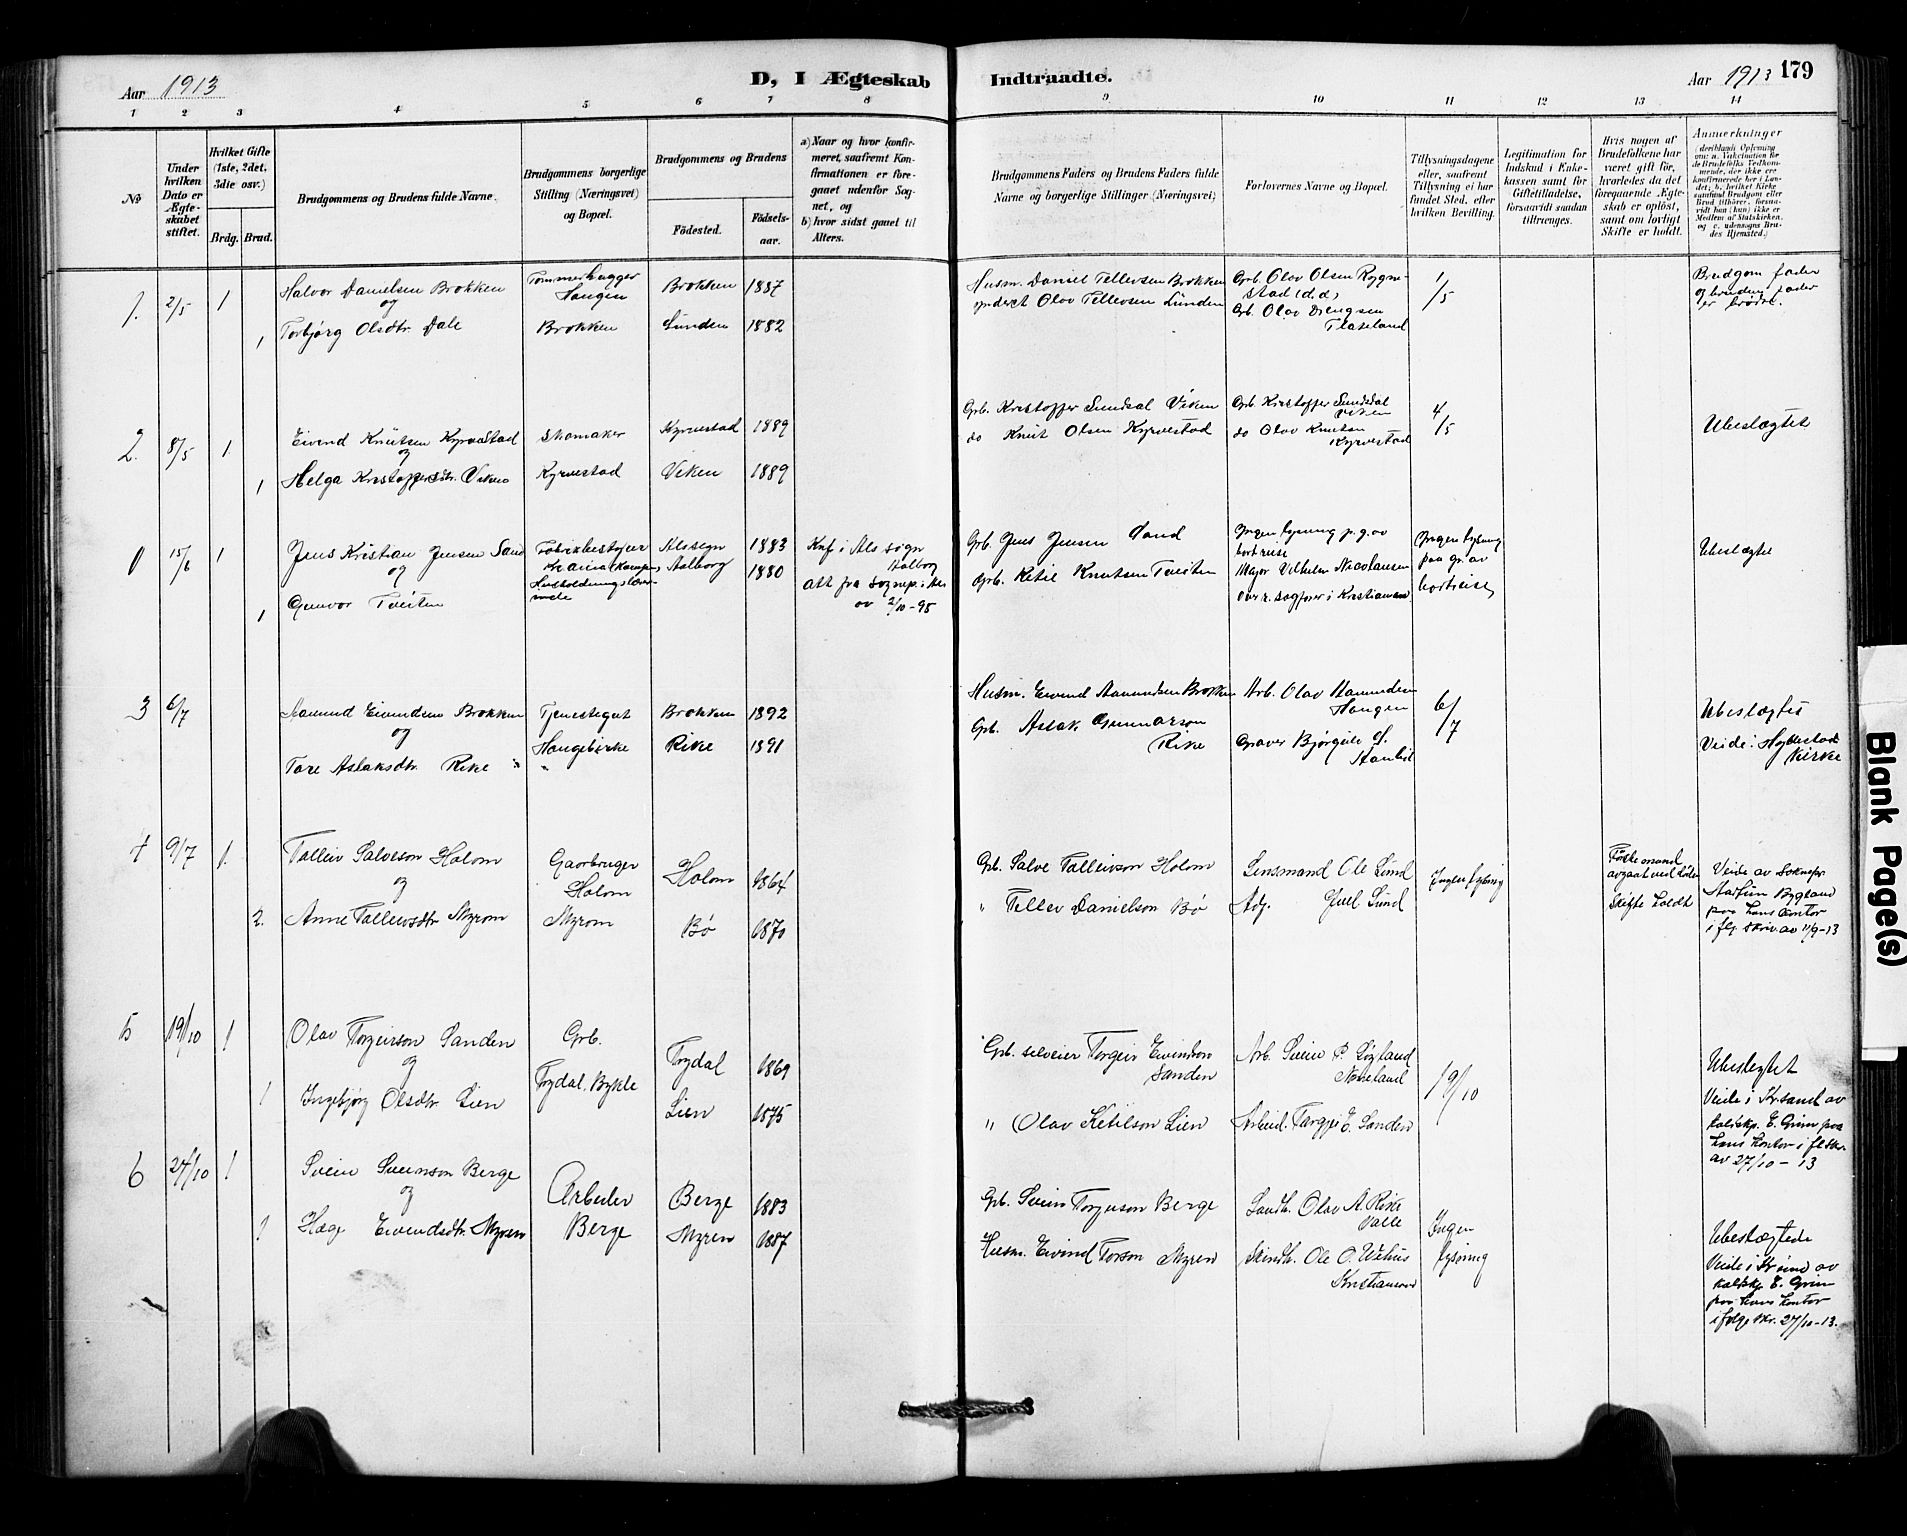 Aar 1913
D, I Ægteskab
Indtraadte.
Aar 1913
179
1 2 3 4 5 6 7 8 9 10 11 12 13 14
No
Under hvilken Dato er Ægteskabet stiftet.
Hvilket Gifte (1ste, 2det, 3die osv.)
Brdg. Brud.
Brudgommens og Brudens fulde Navne.
Brudgommens borgerlige Stilling (Næringsvei) og Bopæl.
Brudgommens og Brudens
Fødested.
Fødsels-aar.
a) Naar og hvor konfirmeret, saafremt Konfirmationen er foregaaet udenfor Sognet, og
b) hvor sidst gaaet til Alters.
Brudgommens Faders og Brudens Faders fulde Navne og borgerlige Stillinger (Næringsvei)
Forlovernes Navne og Bopæl.
Tillysningsdagene eller, saafremt Tillysning ei har fundet Sted, efter hvilken Bevilling.
Legitimation for Indskud i Enkekassen samt for Giftetilladelse, forsaavidt saadan tiltrænges.
Hvis nogen af Brudefolkene har været gift før, hvorledes da det foregaaende Ægteskab er opløst, samt om lovligt Skifte er holdt.
Anmerkninger
1. 2/5 1
Halvor Danielsen Brokken
og
1 Torbjørg Olsdtr. Dale
Tømmerhugger
Haugen
Brokken
Brokken 1887
Lunden 1882
Husm. Daniel Tellevsen Brokken
Olav Tellevsen Lunden
Grb. Olav Olsen Rygnestad (d.d)
Grb. Olav Drengsen
Flateland
1/5
Brudgom fader
og brudens fader
er brødre.
2. 8/5 1
Eivind Knutsen Kyrvestad
og
1 Helga Kristoffersdtr. Viken
Skomaker
Kyrvestad
Kyrvestad 1889
Viken 1889
Grb. Kristoffer Sundsdal Viken
do Knut Olsen Kyrvestad
Grb. Kristoffer Sundsdal
Viken
do Olav Knutsen
Kyrvestad
4/5
Ubeslægtet
15/6 1
Jens Kristian Jensen Sand
og
1 Gunvor Tveiten
Fabrikbestyrer
Husholdningslærerinde
Alssogn 1883
Aalborg 1880
Knf. i Als sogn
Aalborg
att fra sognep. i Als
av 2/10-95
Grb. Jens Jensen Sand
Grb. Ketil Knutsen Tveiten
Ingen lysning p.g.av
bortreise
Major Vilhelm Nicolausen
Over r. sagfører i Kristiansand
Ingen lysning
paa gr. av
bortreise
Ubeslægtet
3 6/7
Aamund Eivindsen Brokken
og
Tore Aslaksdtr. Rike
Tjenestegut
Haugebirke
Brokken 1892
Rike 1891
Husm. Eivind Aamundsen Brokken
Grb. Aslak Gunnarson
Rike
Arb. Olav Aamundsen
Haugen
Graver Bjørgulv
6/7
Ubeslægtet
Viede i Hyllestad
Kirke
4 9/7 1.
Talleiv Salveson Holom
og
2. Anne Tallevsdtr Myrom
Gaarbruger
Holom
Myrom
Holom 1864
Bø 1870
Grb. Salve Talleivson Holom
" Tellev Danielson Bø
Lensmand Ole Lund
Adj. Juel Lund
Ingen lysning
Første mand
avgaat ved døden
Skifte holdt
Viede av Soknepr.
Aarflun Bygland
paa hans kontor
i flg. skriv. av 11/9-13
5 19/10 1
Olav Torgeirson Sanden
og
1 Ingebjørg Olsdtr. Lien
Grb.
Trydal, Bykle
Trydal 1869
Lien 1875
Grb. selveier Torgeir Eivindson
Sanden
" Olav Ketilson Lien
Arb. Svein P. Løyland
Nomeland
Arbeid. Targjei E. Sanden
19/10
Ubeslegtet
Viede i Kr.sand av
kalskp. E. Grim paa
hans kontor i fl skr.
av 27/10 - 13
6 27/10 1
Svein Sveinson Berge
og
1 Hæge Eivendsdtr. Myren
Arbeider
Berge
Berge 1883
Myren 1887
Grb. Svein Torgeirson Berge
Husm. Eivind Torson Myren
Landh. Olav A. Rike
Valle
Skindh. Ole O. Wehus
Kristiansand
Ingen
lysning
Ubeslægtede
Viede i Kr.sand av
kalskp. E. Grim
paa hans kontor
i følge skr. 27/10-13.
Blank Page(s)